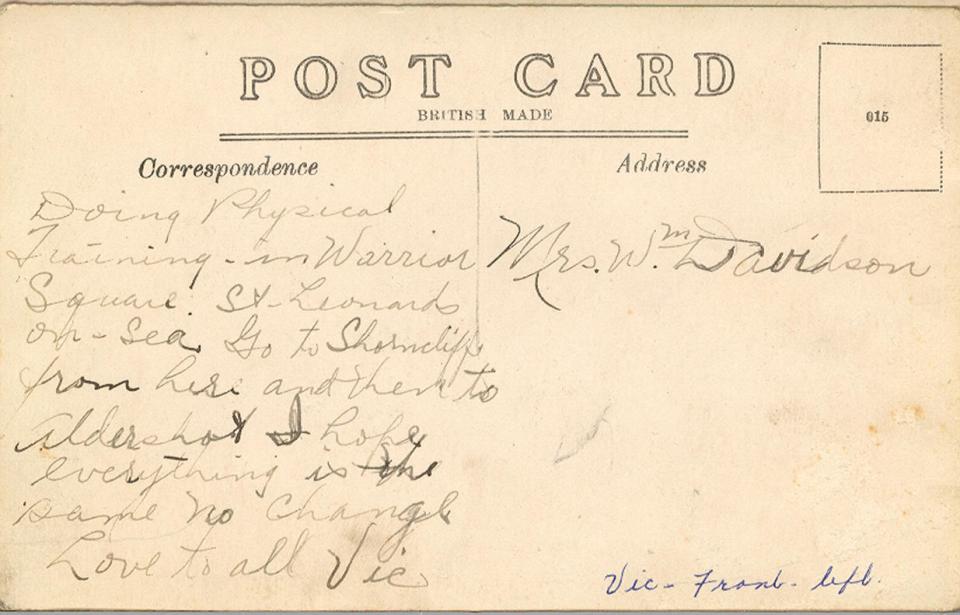 POST CARD
BRITISH MADE
015
Correspondence
Address
Doing Physical
Training - in Warrior
Square. St-Leonards
on-Sea. Go to Shorncliffe
from here and then to
Aldershot I hope
everything is the
same no change
Love to all Vic
Mrs. Wm. Davidson
Vic - Front - left.